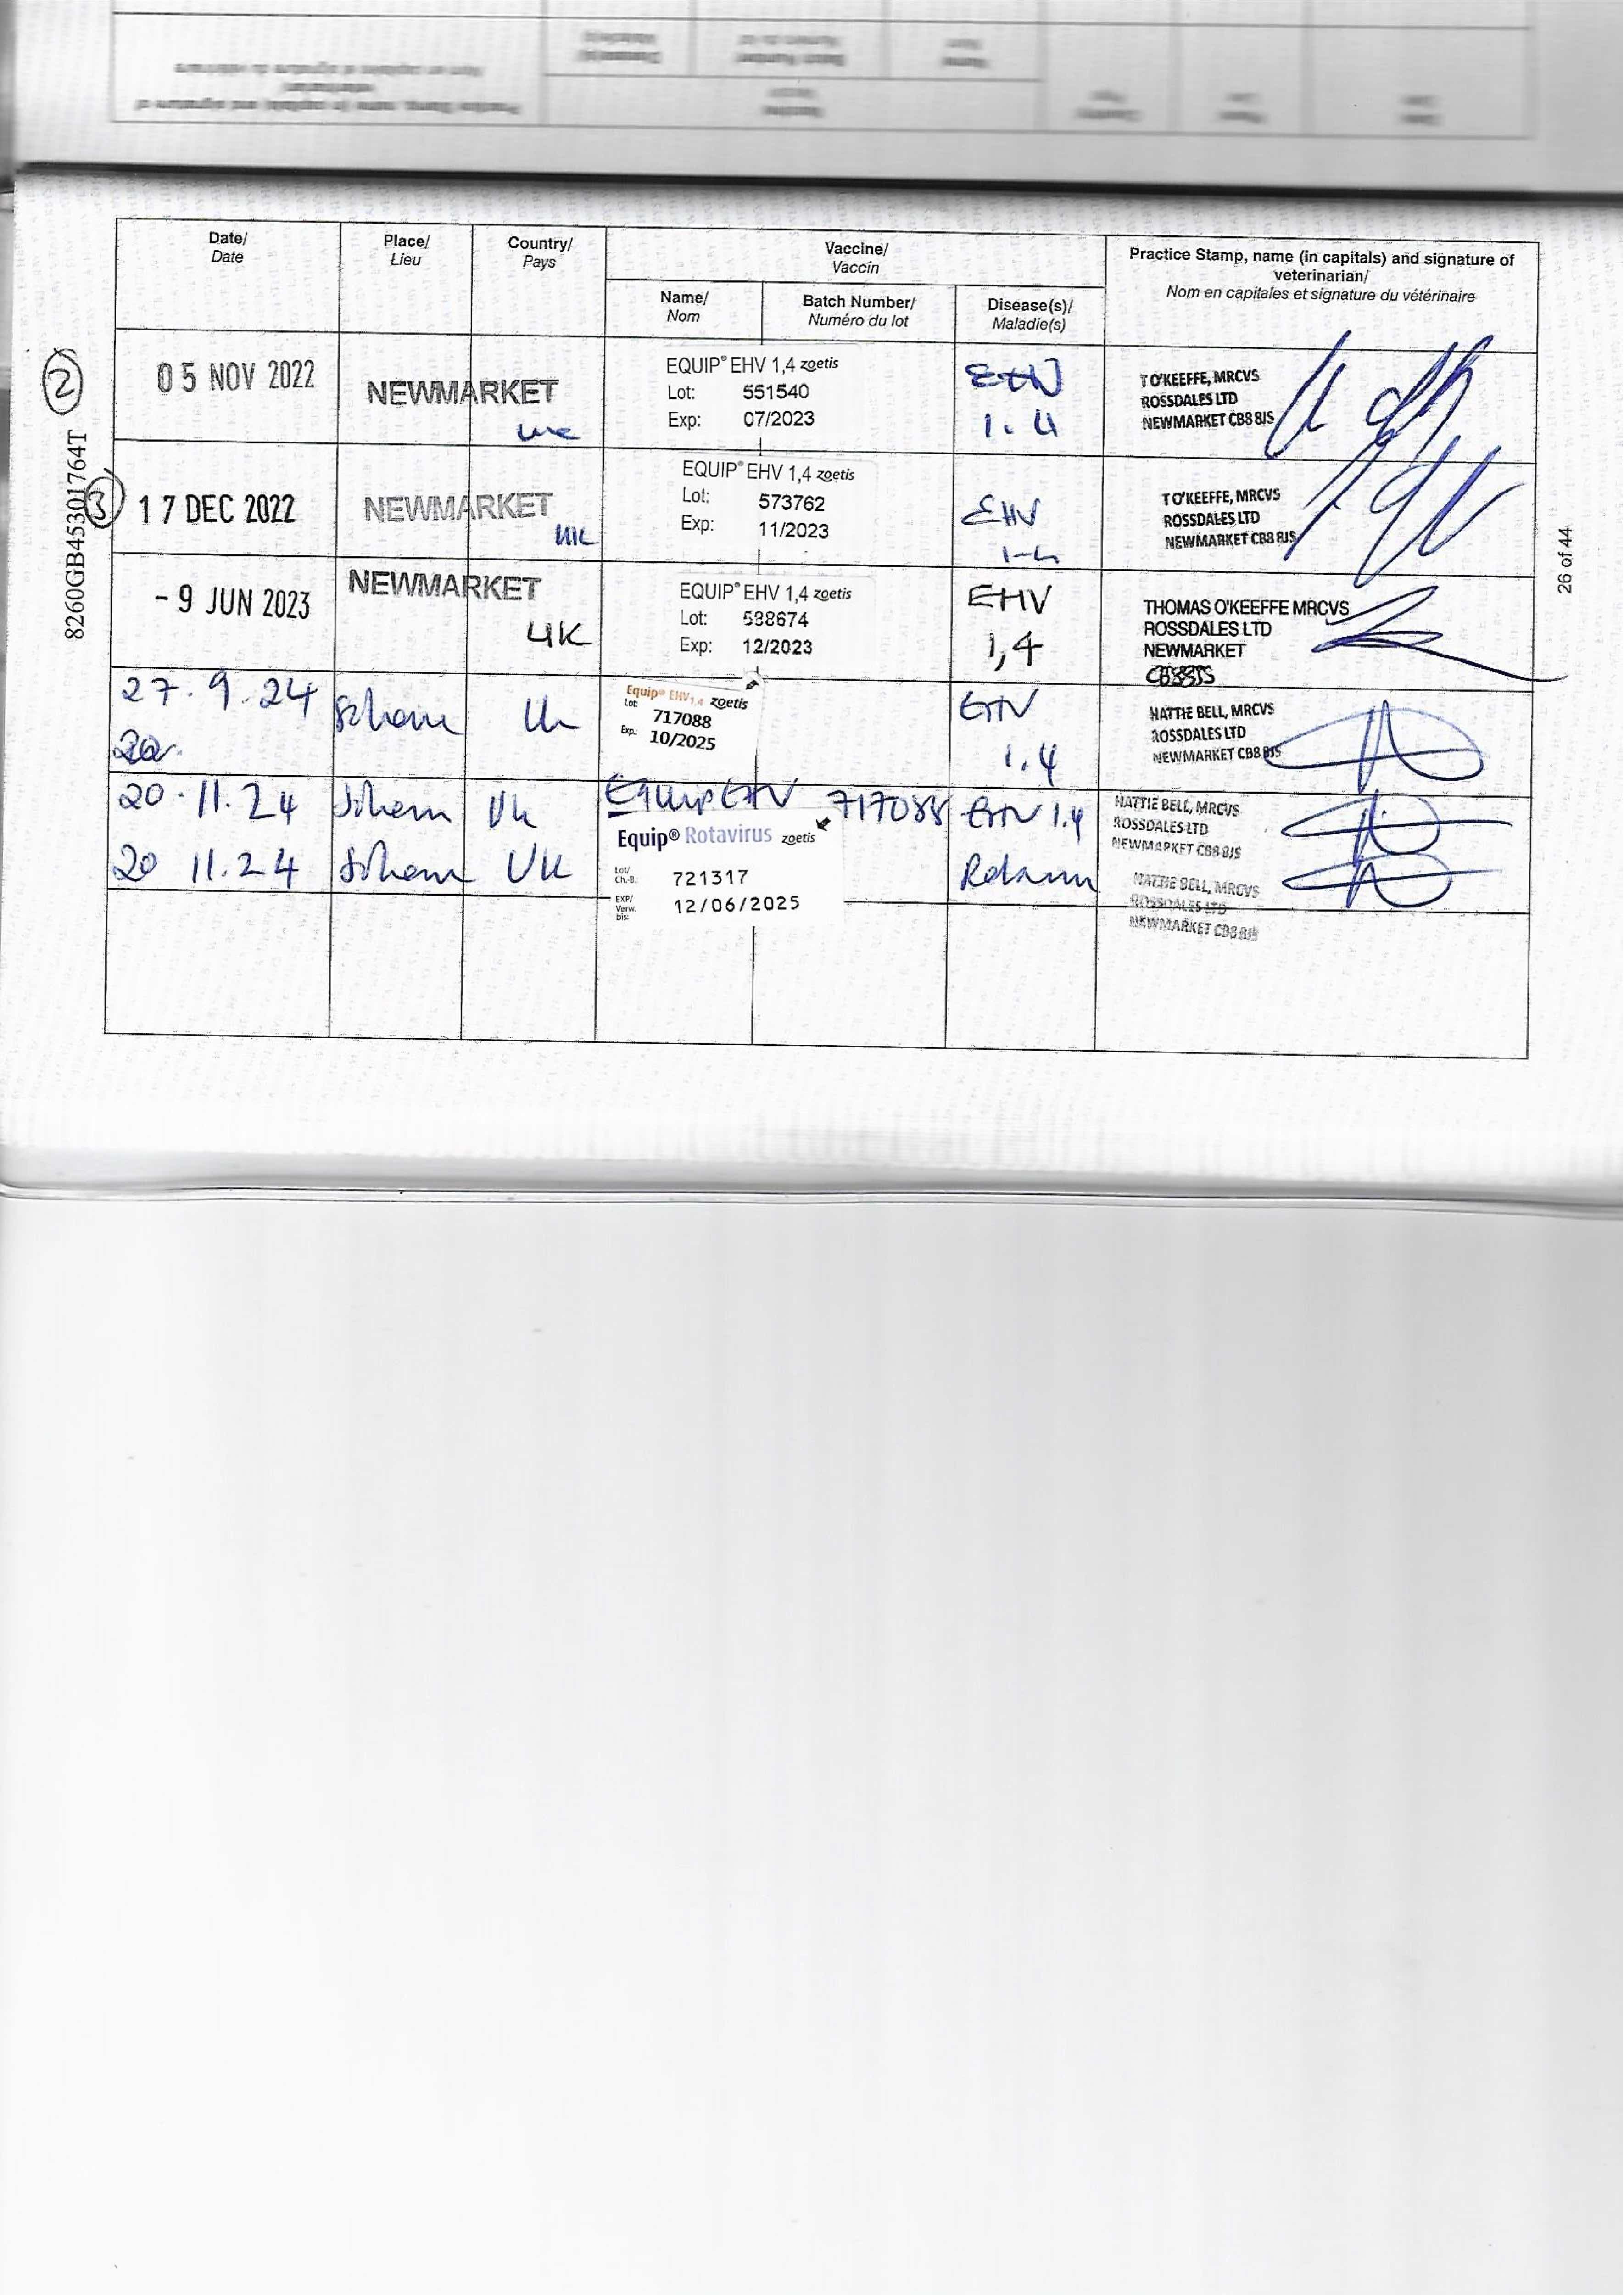 Date/
Date
Place/
Lieu
Country/
Pays
Vaccine/
Vaccin
Practice Stamp, name (in capitals) and signature of
veterinarian/
Nom en capitales et signature du vétérinaire
Name/
Nom
Batch Number/
Numéro du lot
Disease(s)/
Maladie(s)
2
05 NOV 2022
NEWMARKET
UK
EQUIP® EHV 1,4 zoetis
Lot: 551540
Exp: 07/2023
EHV
1.4
T O'KEEFFE, MRCVS
ROSSDALES LTD
NEWMARKET CB8 8JS
3
17 DEC 2022
NEWMARKET
UK
EQUIP® EHV 1,4 zoetis
Lot: 573762
Exp: 11/2023
EHV
1-4
T O'KEEFFE, MRCVS
ROSSDALES LTD
NEWMARKET CB8 8JS
- 9 JUN 2023
NEWMARKET
UK
EQUIP® EHV 1,4 zoetis
Lot: 588674
Exp: 12/2023
EHV
1,4
THOMAS O'KEEFFE MRCVS
ROSSDALES LTD
NEWMARKET
27.9.24
Soham
Uk
Equip® EHV1,4 zoetis
Lot: 717088
Exp: 10/2025
EHV
1.4
HATTIE BELL, MRCVS
ROSSDALES LTD
NEWMARKET CB8 8JS
20.11.24
Soham
Uk
Equip EHV
717088
EHV 1.4
HATTIE BELL, MRCVS
ROSSDALES LTD
NEWMARKET CB8 8JS
20 11.24
Soham
UK
Equip® Rotavirus zoetis
Lot/
Ch.-B. 721317
EXP/
Verw.
bis: 12/06/2025
HATTIE BELL, MRCVS
ROSSDALES LTD
NEWMARKET CB8 8JS
8260GB45301764T
26 of 44